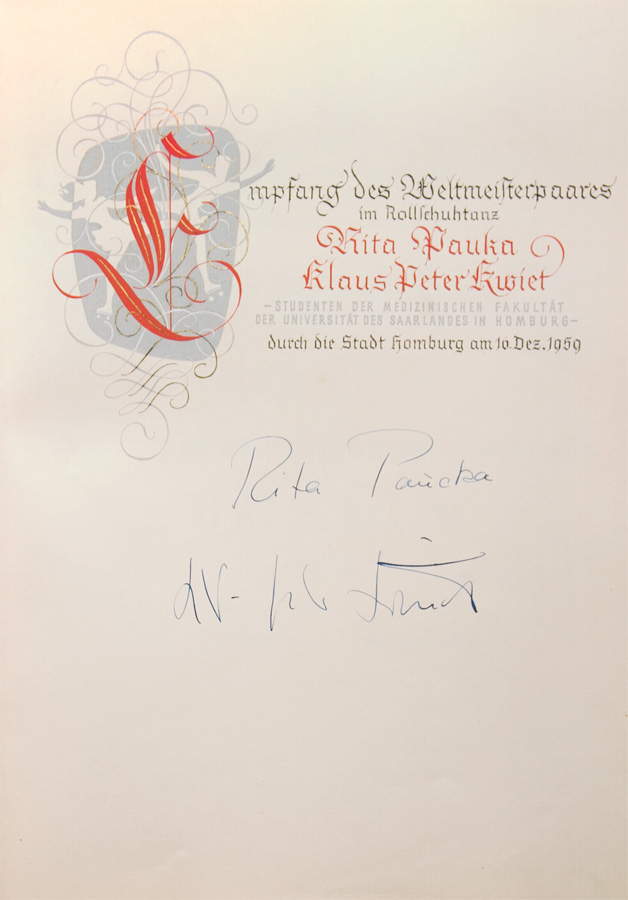 Empfang des Weltmeisterpaares
im Rollschuhtanz
Rita Pauka
Klaus Peter Kwiet
– STUDENTEN DER MEDIZINISCHEN FAKULTÄT
DER UNIVERSITÄT DES SAARLANDES IN HOMBURG –
durch die Stadt Homburg am 16. Dez. 1959
Rita Paucka